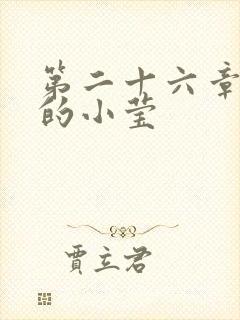 第二十六章
的小莹
贾立君